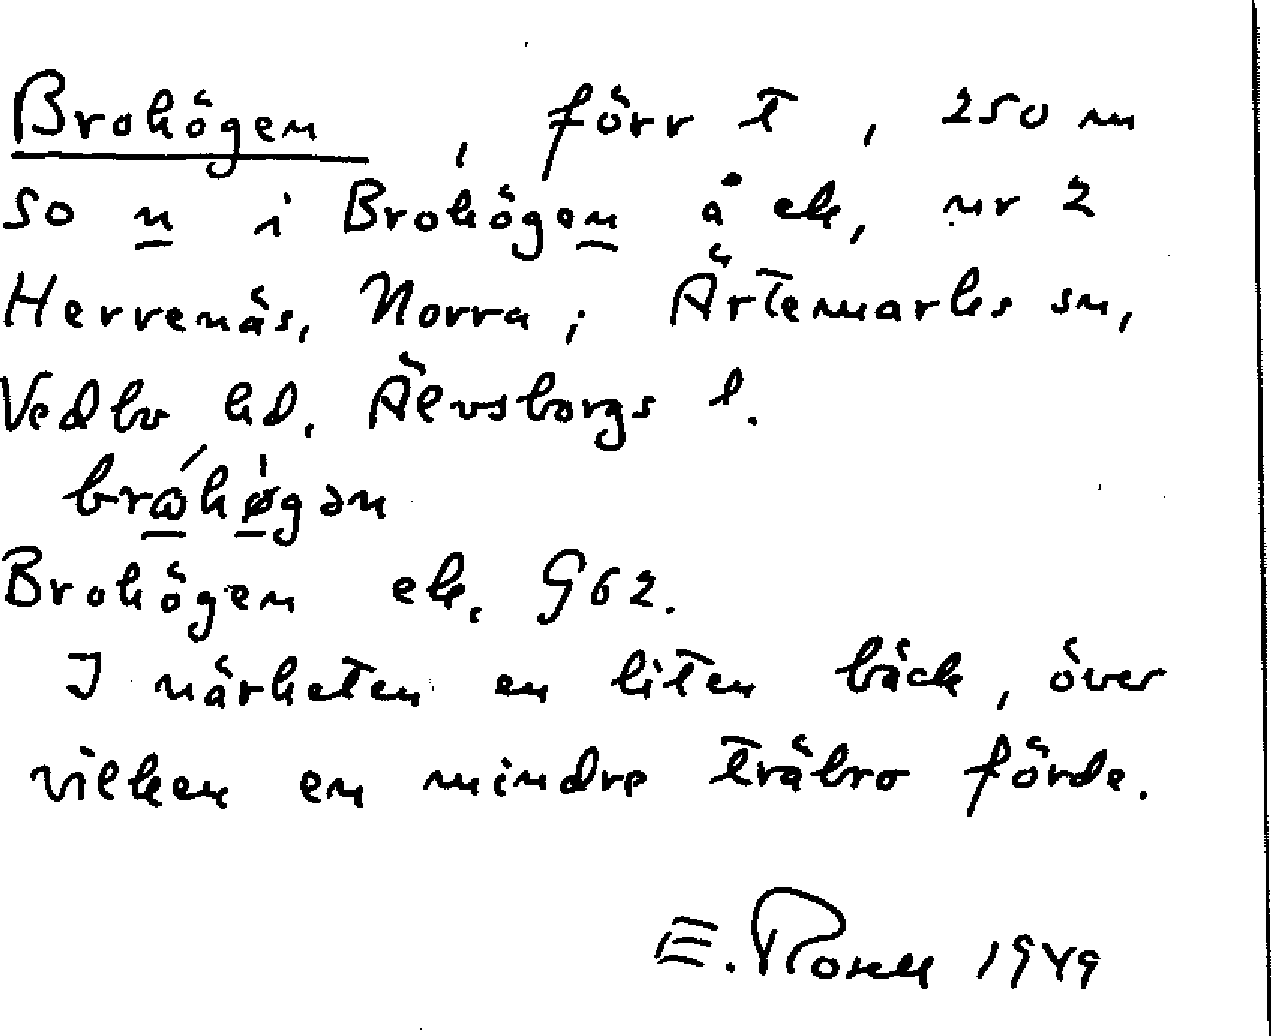 Brohögen , förr t , 250 m
so n i Brohögen å ek, nr 2
Herrenäs, Norra ; Ärtemarks sn,
Vedbo hd, Älvsborgs l.
brhøgən
Brohögen ek. G62.
I närheten en liten bäck, över
vilken en mindre träbro förde.
E. Rosell 1949